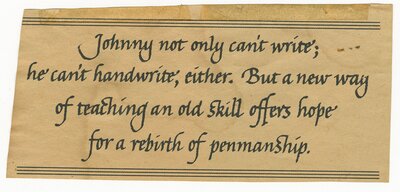 Johnny not only can't write;
he can't handwrite, either. But a new way
of teaching an old skill offers hope
for a rebirth of penmanship.